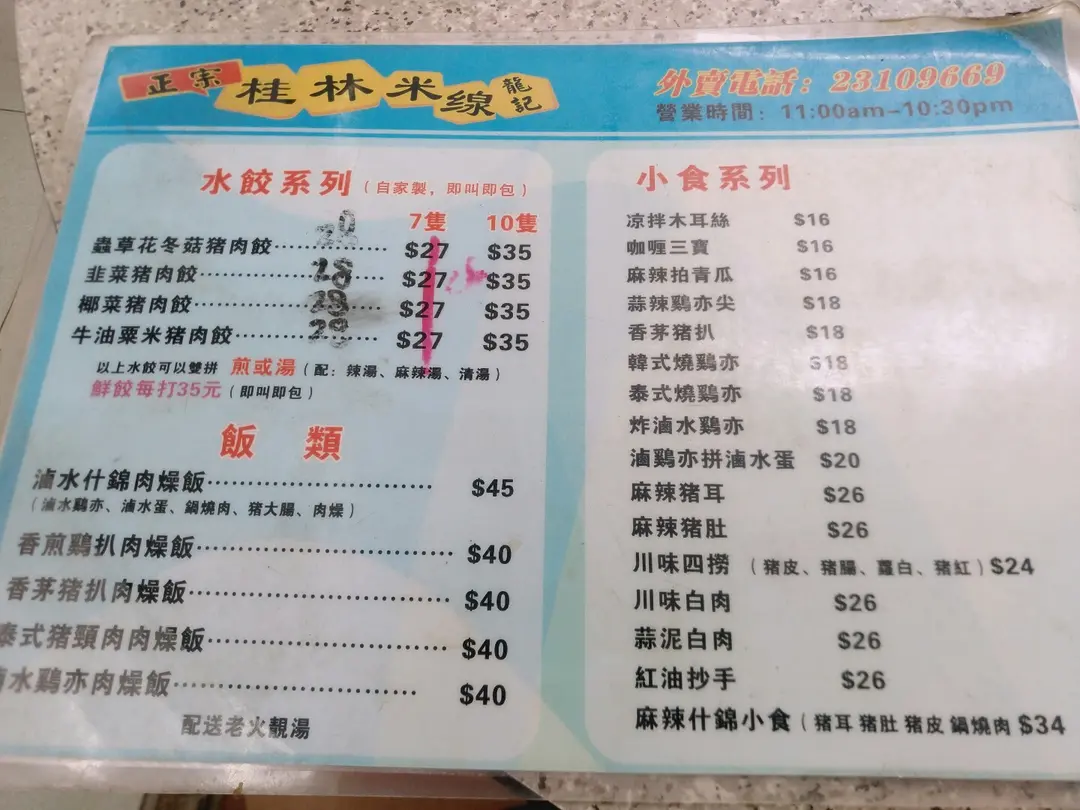 正宗 桂林米線 龍記
外賣電話：23109669
營業時間：11:00am-10:30pm
水餃系列（自家製，即叫即包）
7隻 10隻
蟲草花冬菇猪肉餃 $27 $35
韭菜猪肉餃 28 $27 $35
椰菜猪肉餃 28 $27 $35
牛油粟米猪肉餃 28 $27 $35
以上水餃可以雙拼 煎或湯（配：辣湯、麻辣湯、清湯）
鮮餃每打35元（即叫即包）
飯類
滷水什錦肉燥飯 $45
（滷水鷄亦、滷水蛋、鍋燒肉、猪大腸、肉燥）
香煎鷄扒肉燥飯 $40
香茅猪扒肉燥飯 $40
泰式猪頸肉肉燥飯 $40
水鷄亦肉燥飯 $40
配送老火靚湯
小食系列
凉拌木耳絲 $16
咖喱三寶 $16
麻辣拍青瓜 $16
蒜辣鷄亦尖 $18
香茅猪扒 $18
韓式燒鷄亦 $18
泰式燒鷄亦 $18
炸滷水鷄亦 $18
滷鷄亦拼滷水蛋 $20
麻辣猪耳 $26
麻辣猪肚 $26
川味四撈（猪皮、猪腸、蘿白、猪紅）$24
川味白肉 $26
蒜泥白肉 $26
紅油抄手 $26
麻辣什錦小食（猪耳 猪肚 猪皮 鍋燒肉 $34